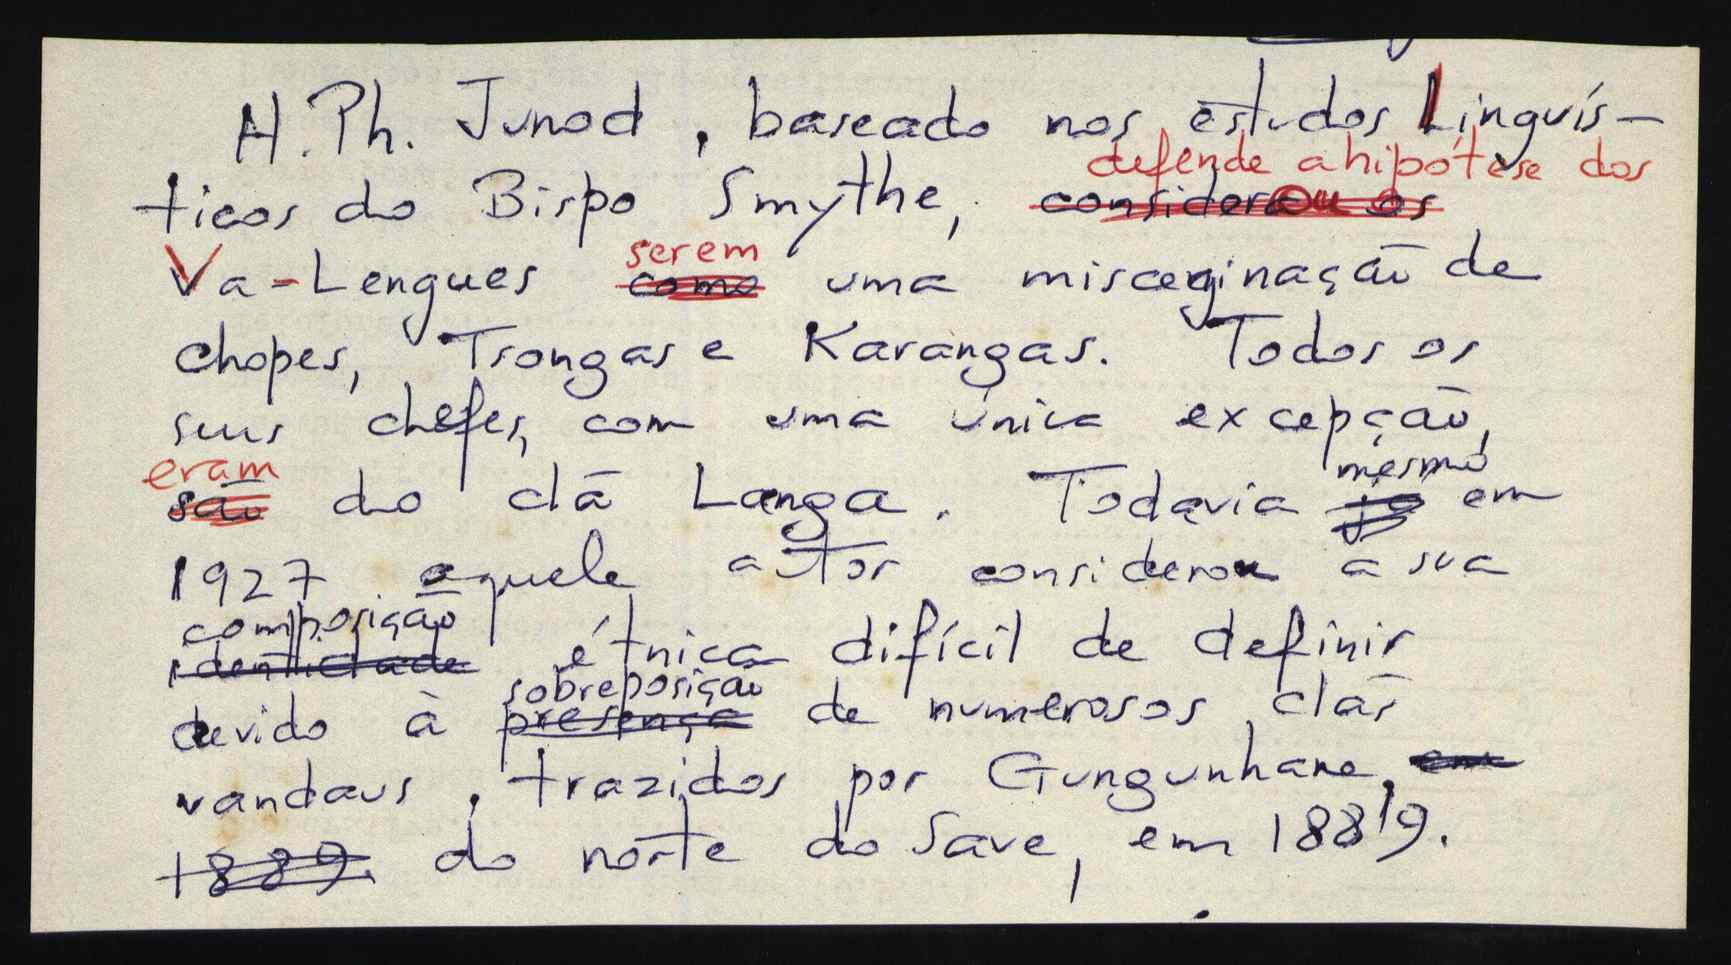 H. Ph. Junod, baseado nos estudos Linguís-
defende a hipótese dos
ticos do Bispo Smythe, considerou os
serem
Va-Lengues como uma misceginação de
chopes, Tsongas e Karangas. Todos os
seus chefes, com uma única excepção,
eram
mesmo
são do clã Langa. Todavia já em
1927 aquele autor considerou a sua
composição
identidade étnica difícil de definir
sobreposição
devido à presença de numerosos clãs
vandaus, trazidos por Gungunhane, em
1889. do norte do Save, em 1889.